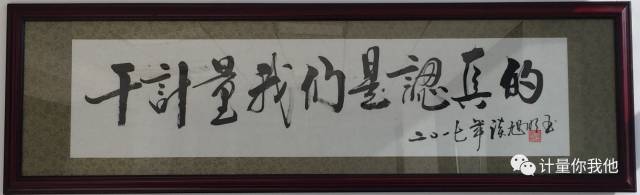 干計量我们是認真的
二〇一七年
计量你我他